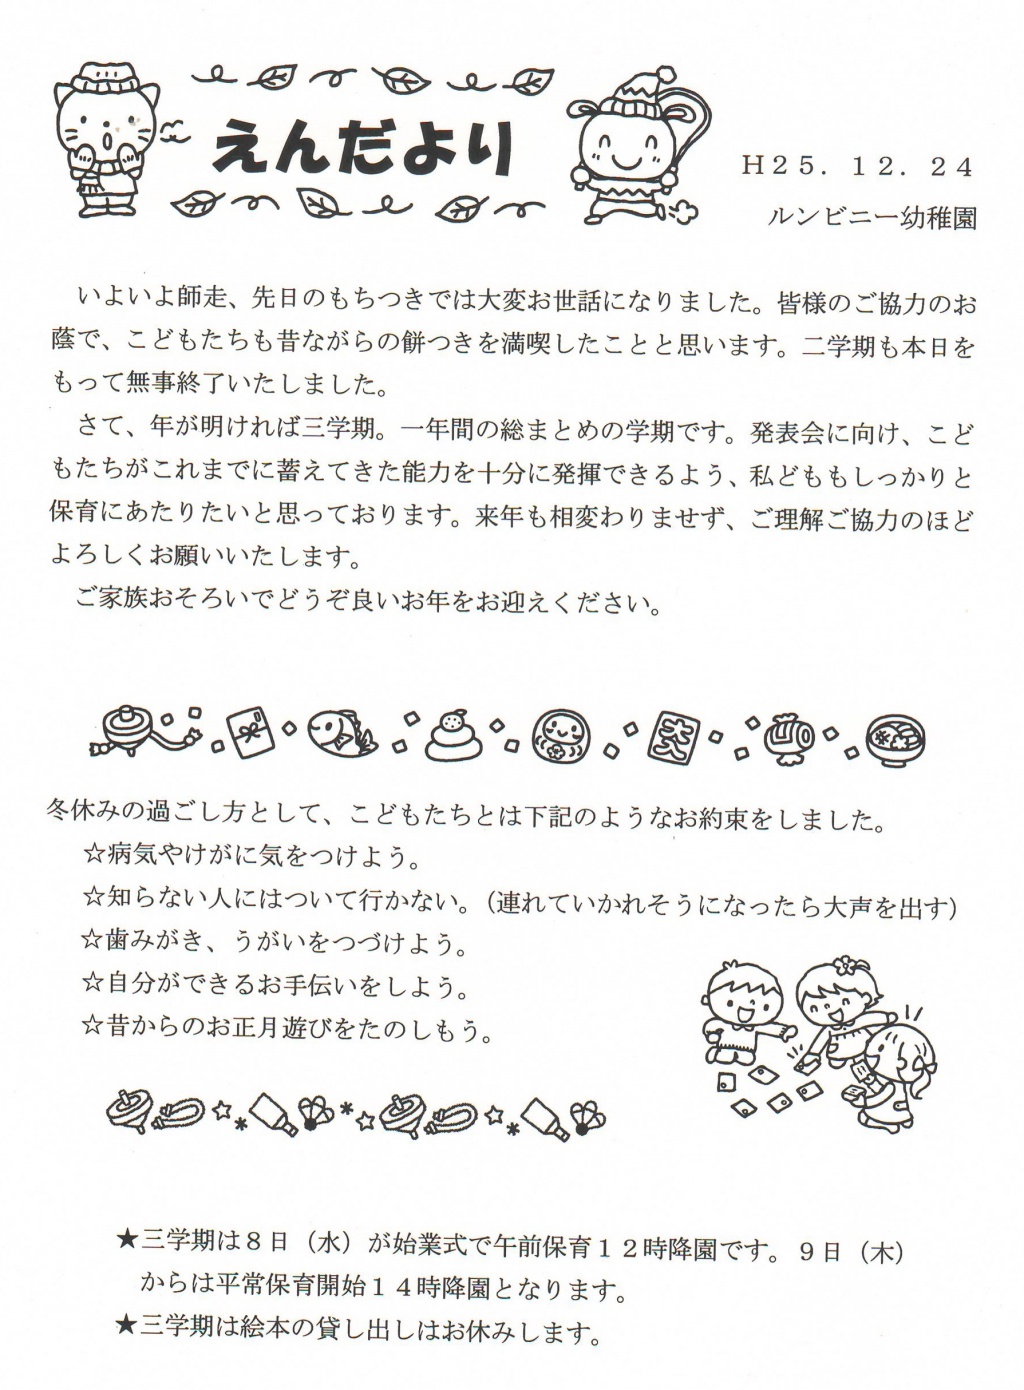 えんだより
H25．12．24
ルンビニー幼稚園
いよいよ師走、先日のもちつきでは大変お世話になりました。皆様のご協力のお
蔭で、こどもたちも昔ながらの餅つきを満喫したことと思います。二学期も本日を
もって無事終了いたしました。
さて、年が明ければ三学期。一年間の総まとめの学期です。発表会に向け、こど
もたちがこれまでに蓄えてきた能力を十分に発揮できるよう、私どももしっかりと
保育にあたりたいと思っております。来年も相変わりませず、ご理解ご協力のほど
よろしくお願いいたします。
ご家族おそろいでどうぞ良いお年をお迎えください。
冬休みの過ごし方として、こどもたちとは下記のようなお約束をしました。
☆病気やけがに気をつけよう。
☆知らない人にはついて行かない。（連れていかれそうになったら大声を出す）
☆歯みがき、うがいをつづけよう。
☆自分ができるお手伝いをしよう。
☆昔からのお正月遊びをたのしもう。
★三学期は８日（水）が始業式で午前保育１２時降園です。９日（木）
からは平常保育開始１４時降園となります。
★三学期は絵本の貸し出しはお休みします。